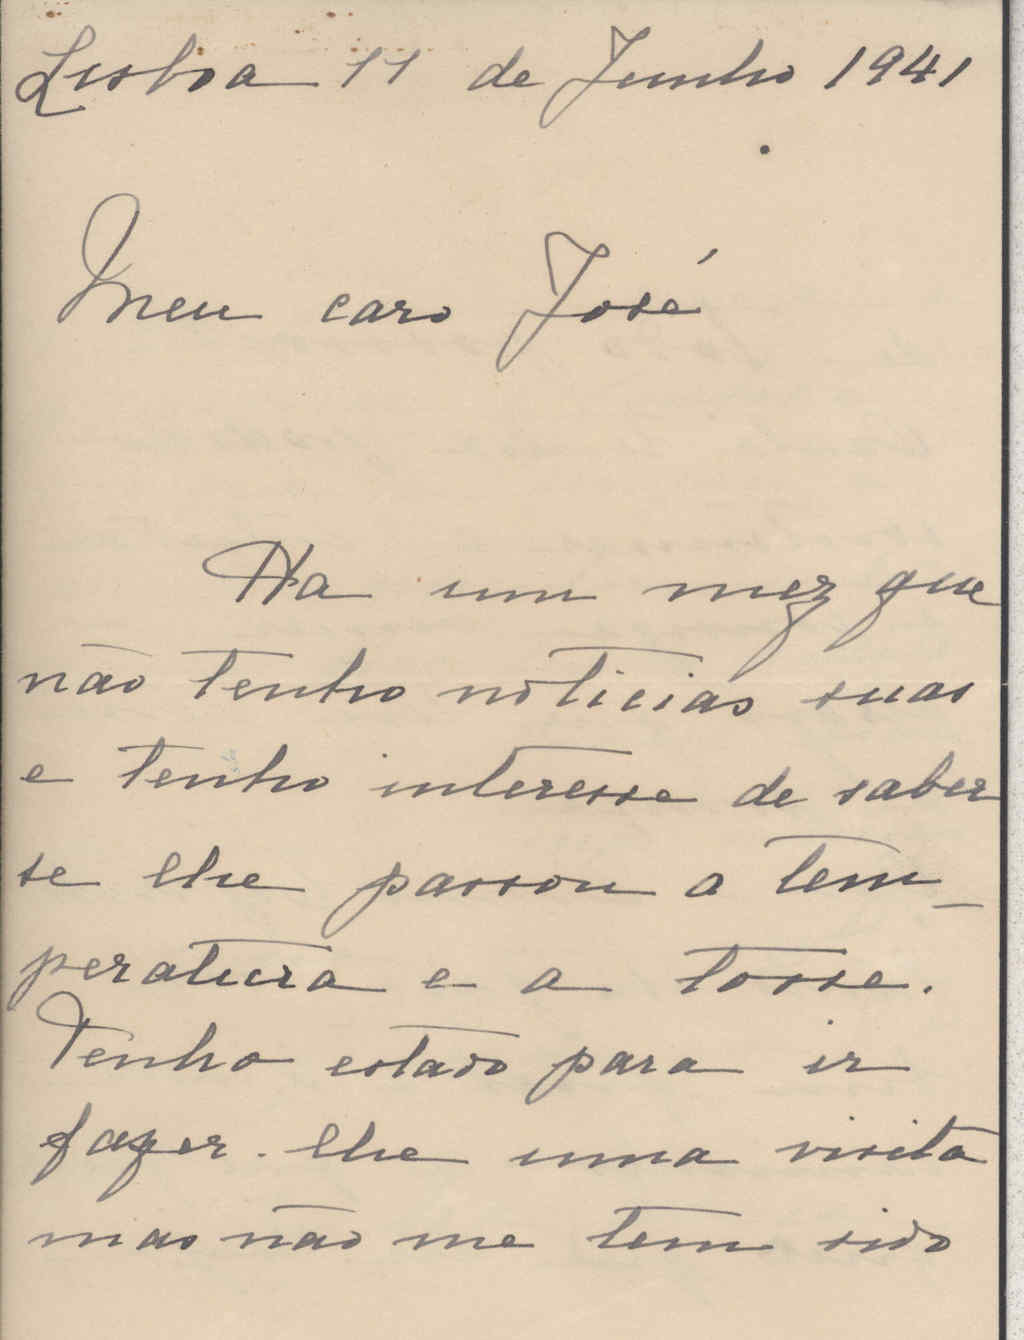 Lisboa 11 de Junho 1941
Meu caro José
Ha um mez que
não tenho noticias suas
e tenho interesse de saber
se lhe passou a tem-
peratura e a tosse.
Tenho estado para ir
fazer-lhe uma visita
mas não me tem sido